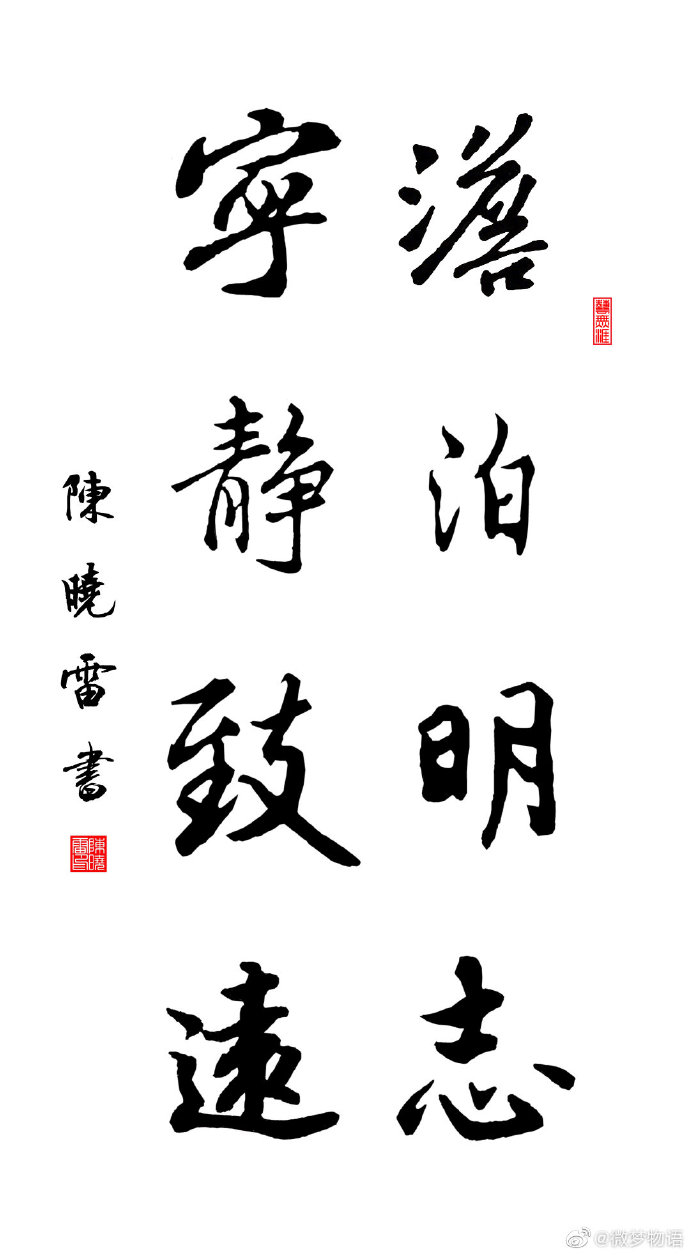 澹泊明志
寧靜致遠
陳曉雷書
陳曉雷印
@微梦物语